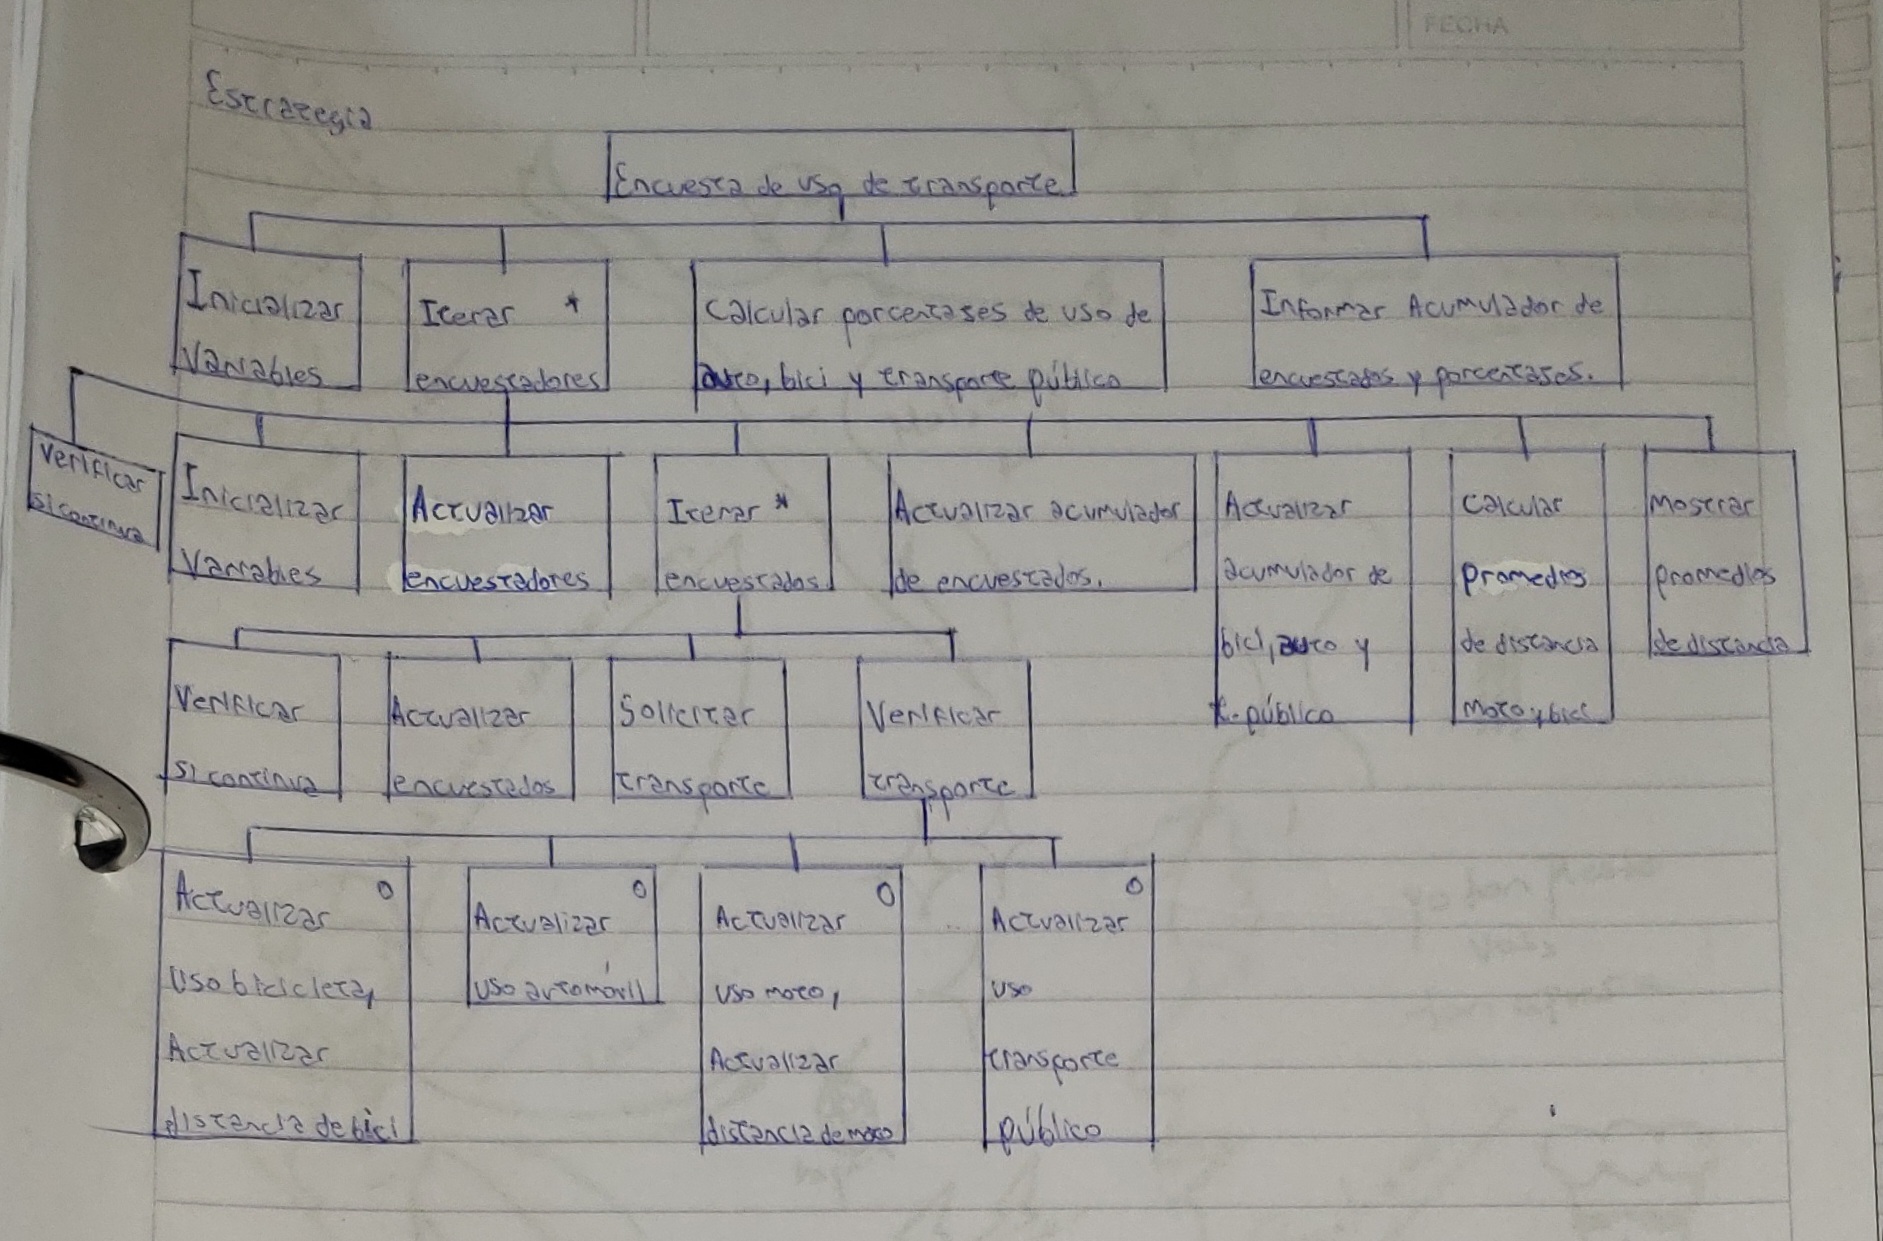 FECHA
Estrategia
Encuesta de uso de transporte
Inicializar
Variables
Iterar *
encuestadores
Calcular porcentajes de uso de
auto, bici y transporte público
Informar Acumulador de
encuestados y porcentajes.
Verificar
si continua
Inicializar
Variables
Actualizar
encuestadores
Iterar *
encuestados
Actualizar acumulador
de encuestados.
Actualizar
acumulador de
bici, auto y
t. público
Calcular
promedios
de distancia
moto y bici
Mostrar
promedios
de distancia
Verificar
si continua
Actualizar
encuestados
Solicitar
transporte
Verificar
transporte
Actualizar o
uso bicicleta,
Actualizar
distancia de bici
Actualizar o
uso automóvil
Actualizar o
uso moto,
Actualizar
distancia de moto
Actualizar o
uso
transporte
público